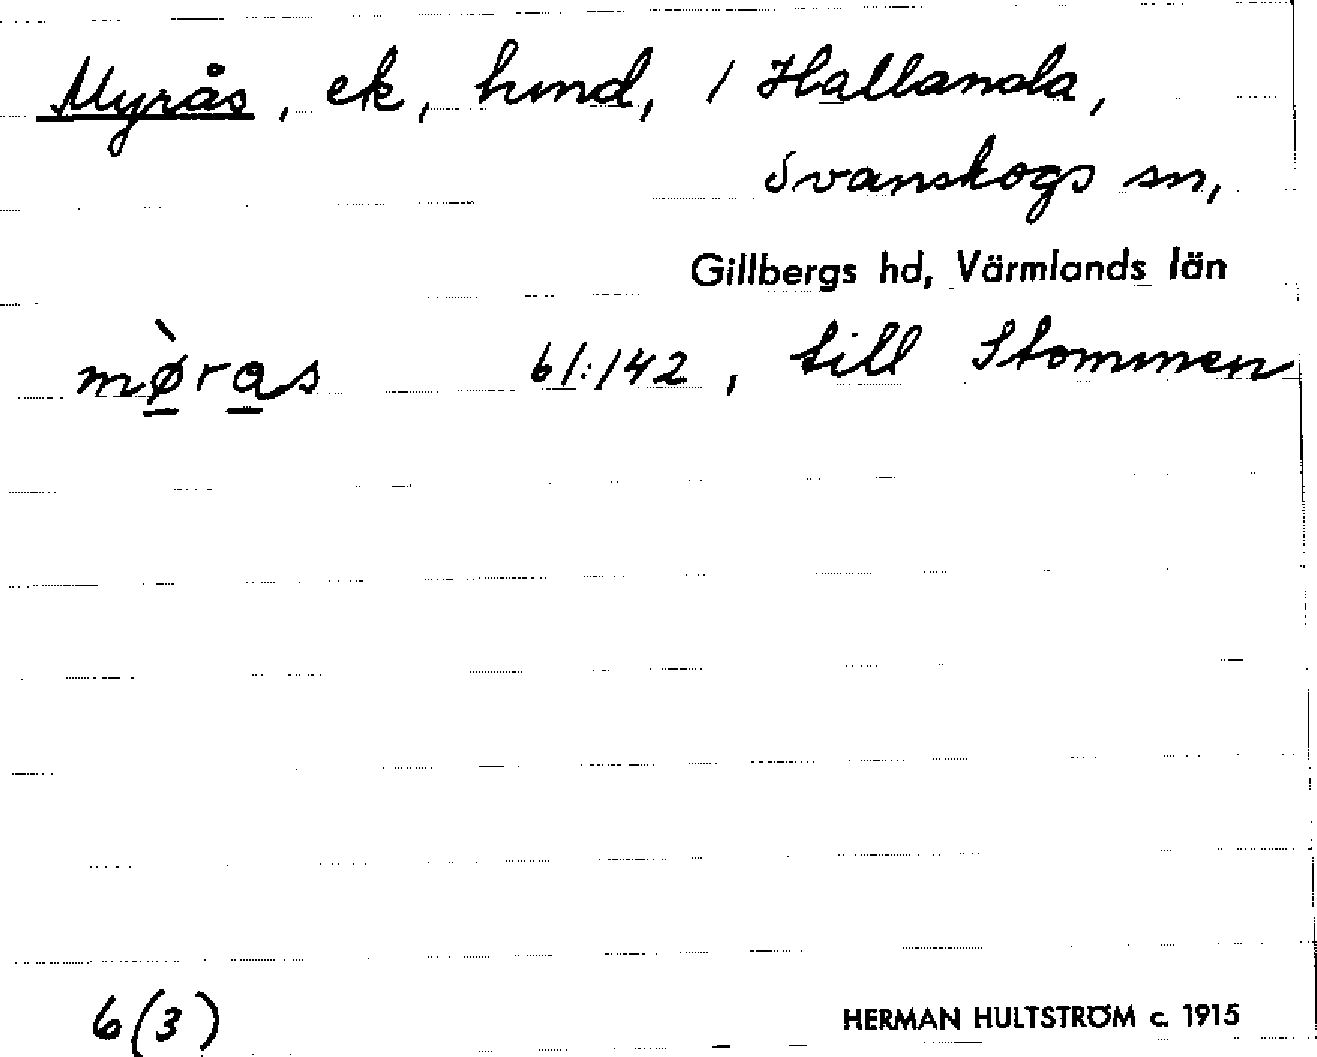 Myrås, ek, hmd, / Hallanda,
Svanskogs sn,
Gillbergs hd, Värmlands län
mø̀ras 61:142, till Stommen
6(3) HERMAN HULTSTRÖM c. 1915